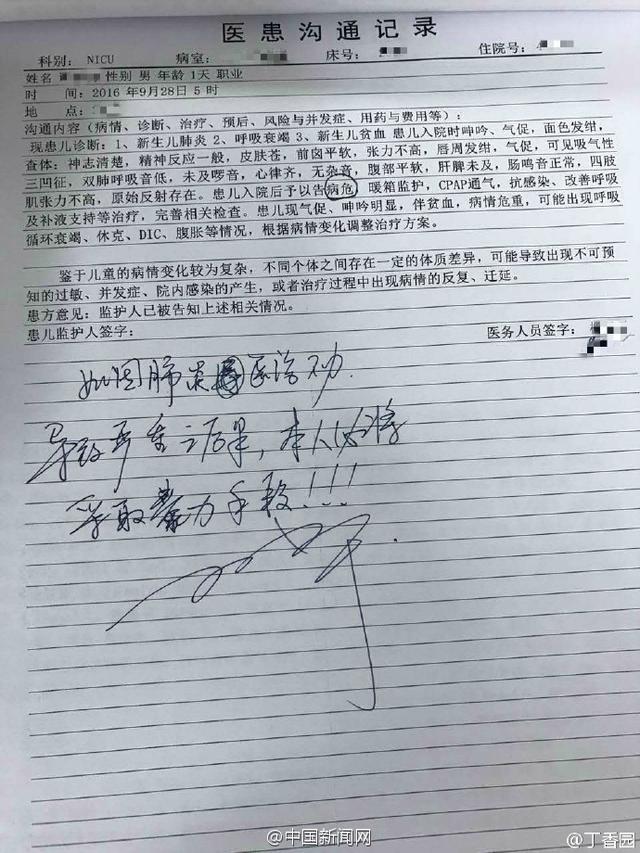 医患沟通记录
科别：NICU 病室： 床号： 住院号：
姓名 性别 男 年龄 1天 职业
时 间：2016 年9月28日 5 时
地 点：
沟通内容（病情、诊断、治疗、预后、风险与并发症、用药与费用等）：
现患儿诊断：1、新生儿肺炎 2、呼吸衰竭 3、新生儿贫血 患儿入院时呻吟、气促，面色发绀，
查体：神志清楚，精神反应一般，皮肤苍，前囟平软，张力不高，唇周发绀，气促，可见吸气性
三凹征，双肺呼吸音低，未及啰音，心律齐，无杂音，腹部平软，肝脾未及，肠鸣音正常，四肢
肌张力不高，原始反射存在。患儿入院后予以告病危，暖箱监护，CPAP通气，抗感染、改善呼吸
及补液支持等治疗，完善相关检查。患儿现气促、呻吟明显，伴贫血，病情危重，可能出现呼吸
循环衰竭、休克、DIC、腹胀等情况，根据病情变化调整治疗方案。
鉴于儿童的病情变化较为复杂，不同个体之间存在一定的体质差异，可能导致出现不可预
知的过敏、并发症、院内感染的产生，或者治疗过程中出现病情的反复、迁延。
患方意见：监护人已被告知上述相关情况。
患儿监护人签字： 医务人员签字：
如因肺炎医治不力
导致严重之后果，本人必将
采取暴力手段！！！
@中国新闻网
@丁香园